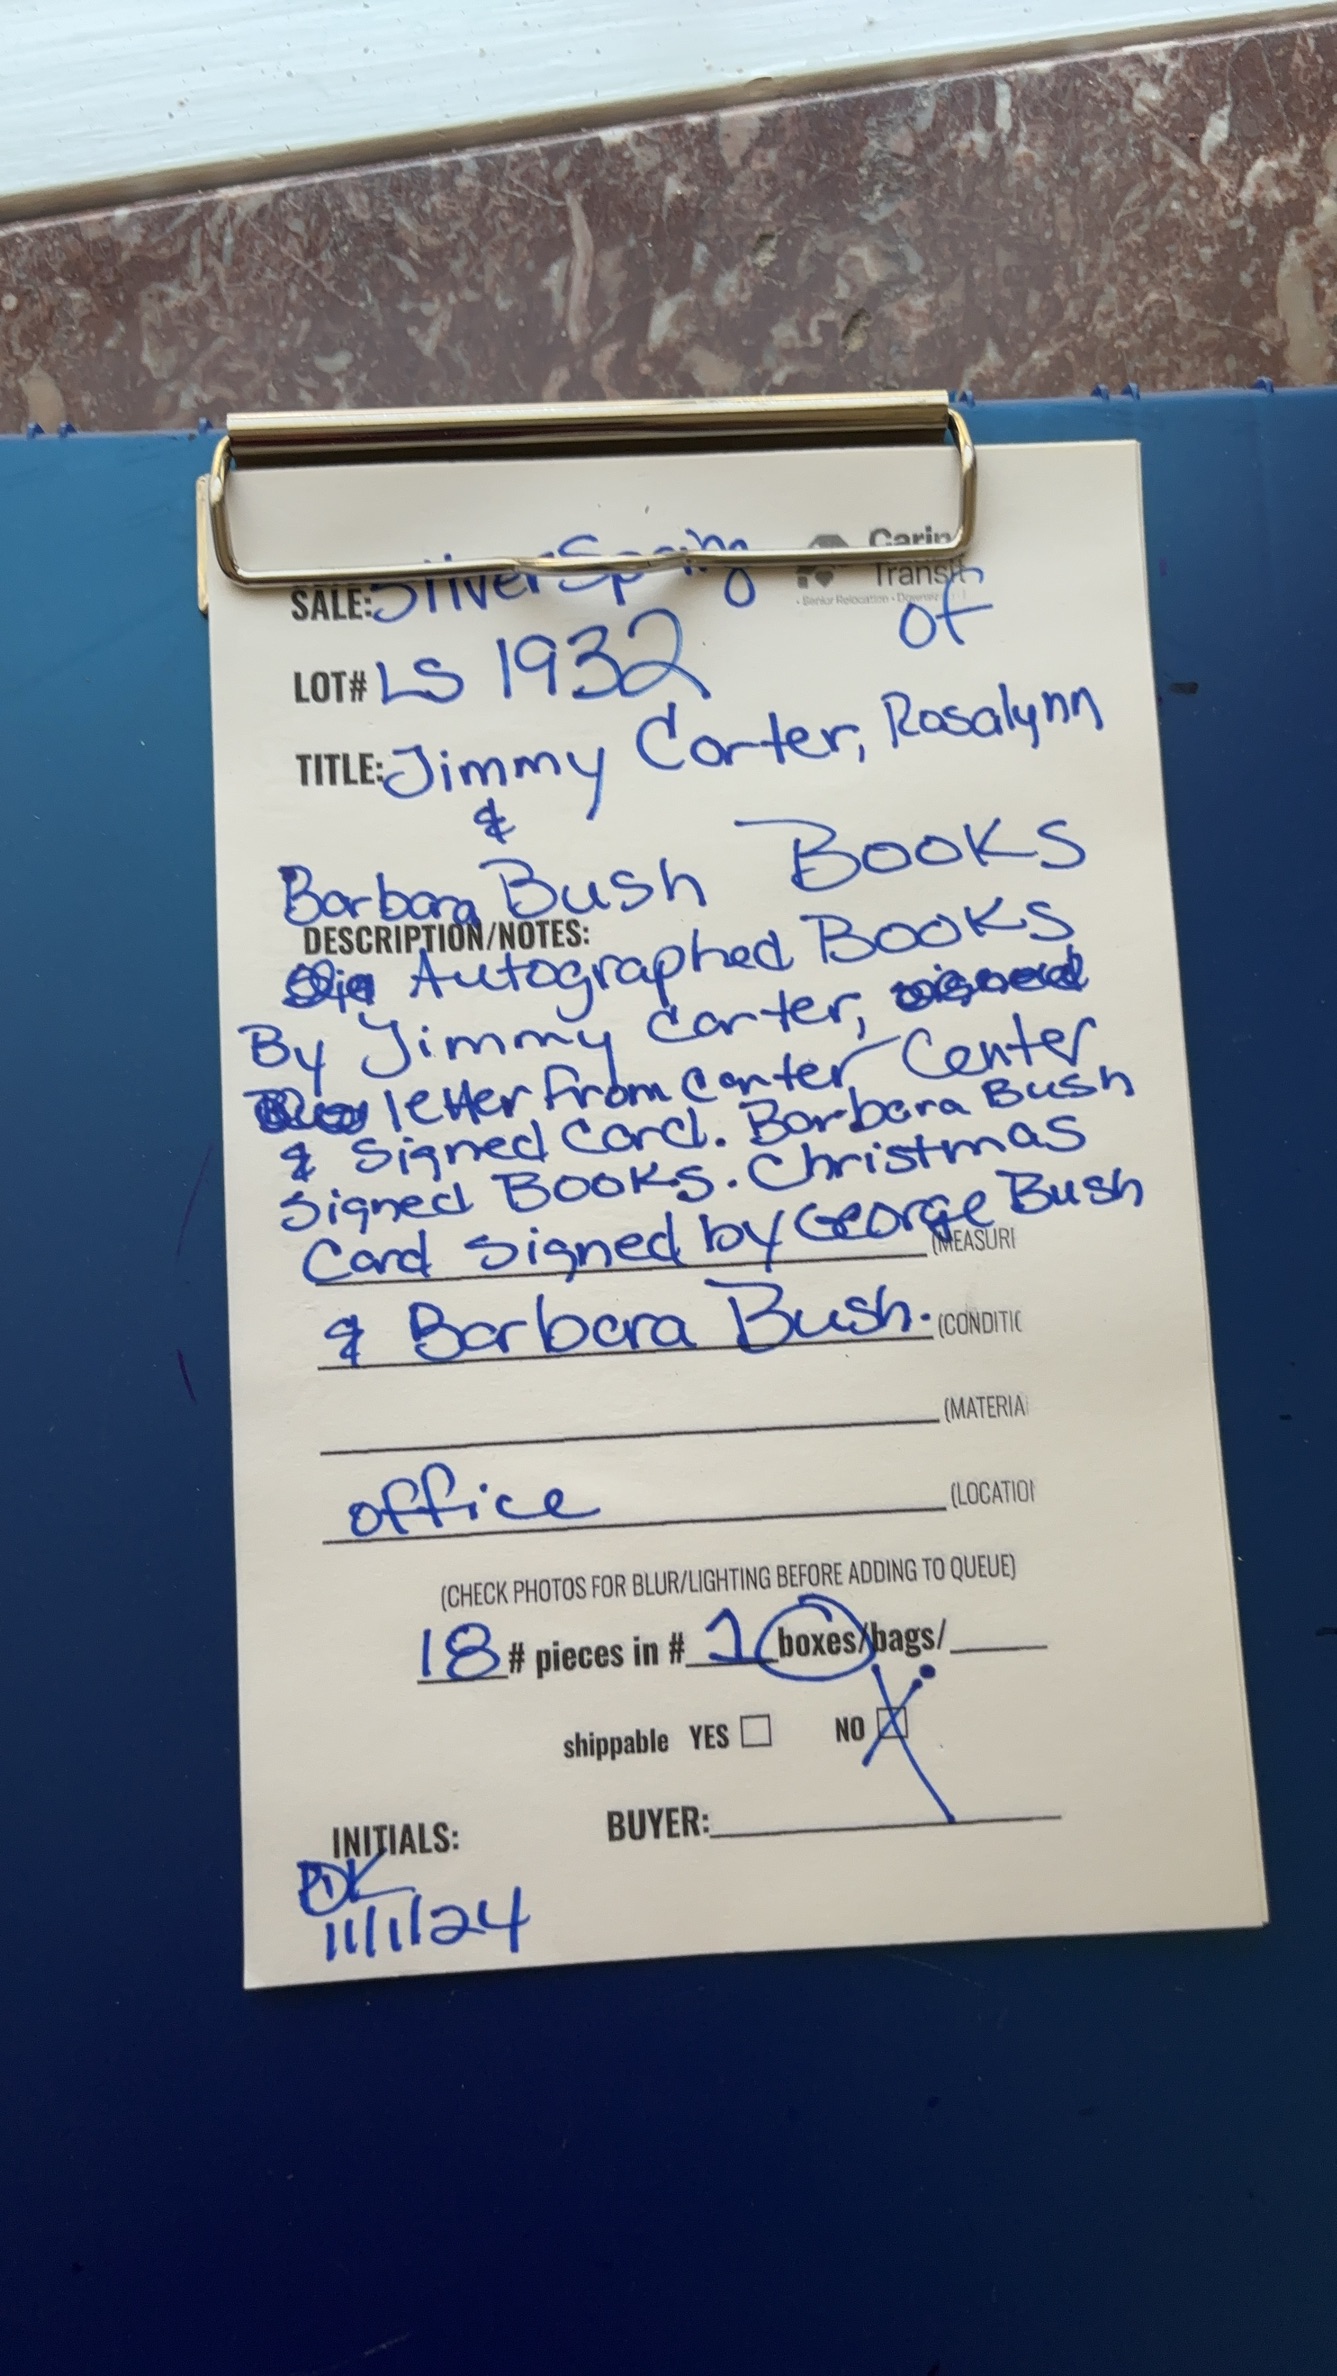 SALE: Silver Spring
Carin
Transit
of
LOT# LS 1932
TITLE: Jimmy Carter, Rosalynn
&
Barbara Bush Books
DESCRIPTION/NOTES:
Autographed Books
By Jimmy Carter,
letter from Carter Center
& Signed Card. Barbara Bush
Signed Books. Christmas
Card signed by George Bush
(MEASURI
& Barbara Bush. (CONDITIC
(MATERIA
office (LOCATION
(CHECK PHOTOS FOR BLUR/LIGHTING BEFORE ADDING TO QUEUE)
18 # pieces in # 1 boxes/bags/
shippable YES NO
INITIALS: BUYER:
11/1/24